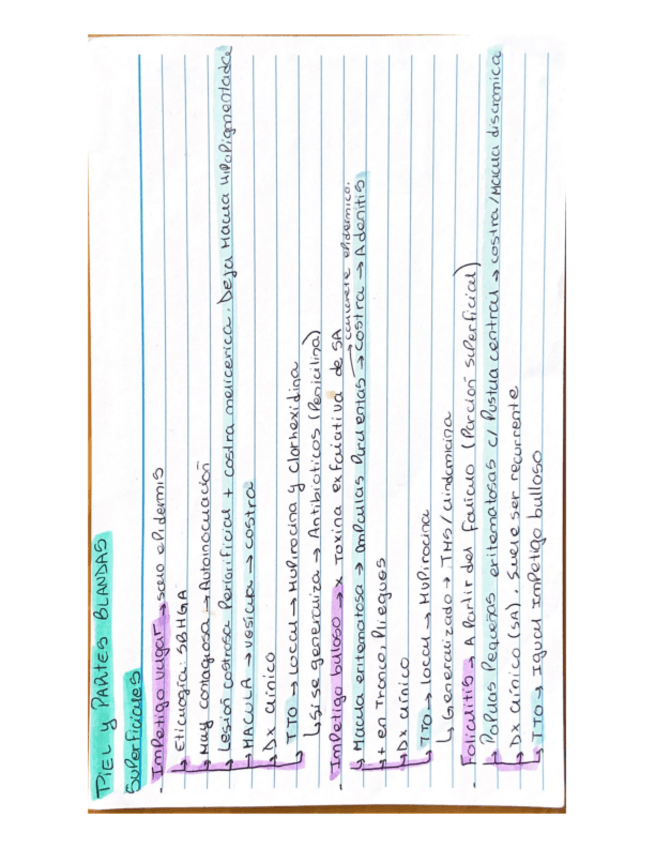 PIEL y PARTES BLANDAS
Superficiales
. Impetigo vulgar → solo epidermis
→ Etiología: SBHGA
→ Muy contagiosa → Autoinoculación
→ Lesión costrosa Periorificial + costra melicerica. Deja Macula hipopigmentada
→ MACULA → vesícula → costra
→ Dx clínico
→ TTO → Local → Mupirocina y clorhexidina
↳ Si se generaliza → Antibióticos (Penicilina)
. Impetigo bulloso → x Toxina exfoliativa de SA
→ Macula eritematosa → ampulas purulentas → costra → Adenitis
→ concrete epidermico.
→ + en Tronco, Pliegues
→ Dx clínico
→ TTO → local → Mupirocina
↳ Generalizado → TMS / clindamicina
. Foliculitis → A partir del foliculo (Porción superficial)
→ Papulas Pequeñas eritematosas c/ Pustula central → costra / Macula discromica
→ Dx clínico (SA). Suele ser recurrente
→ TTO → Igual Impetigo bulloso